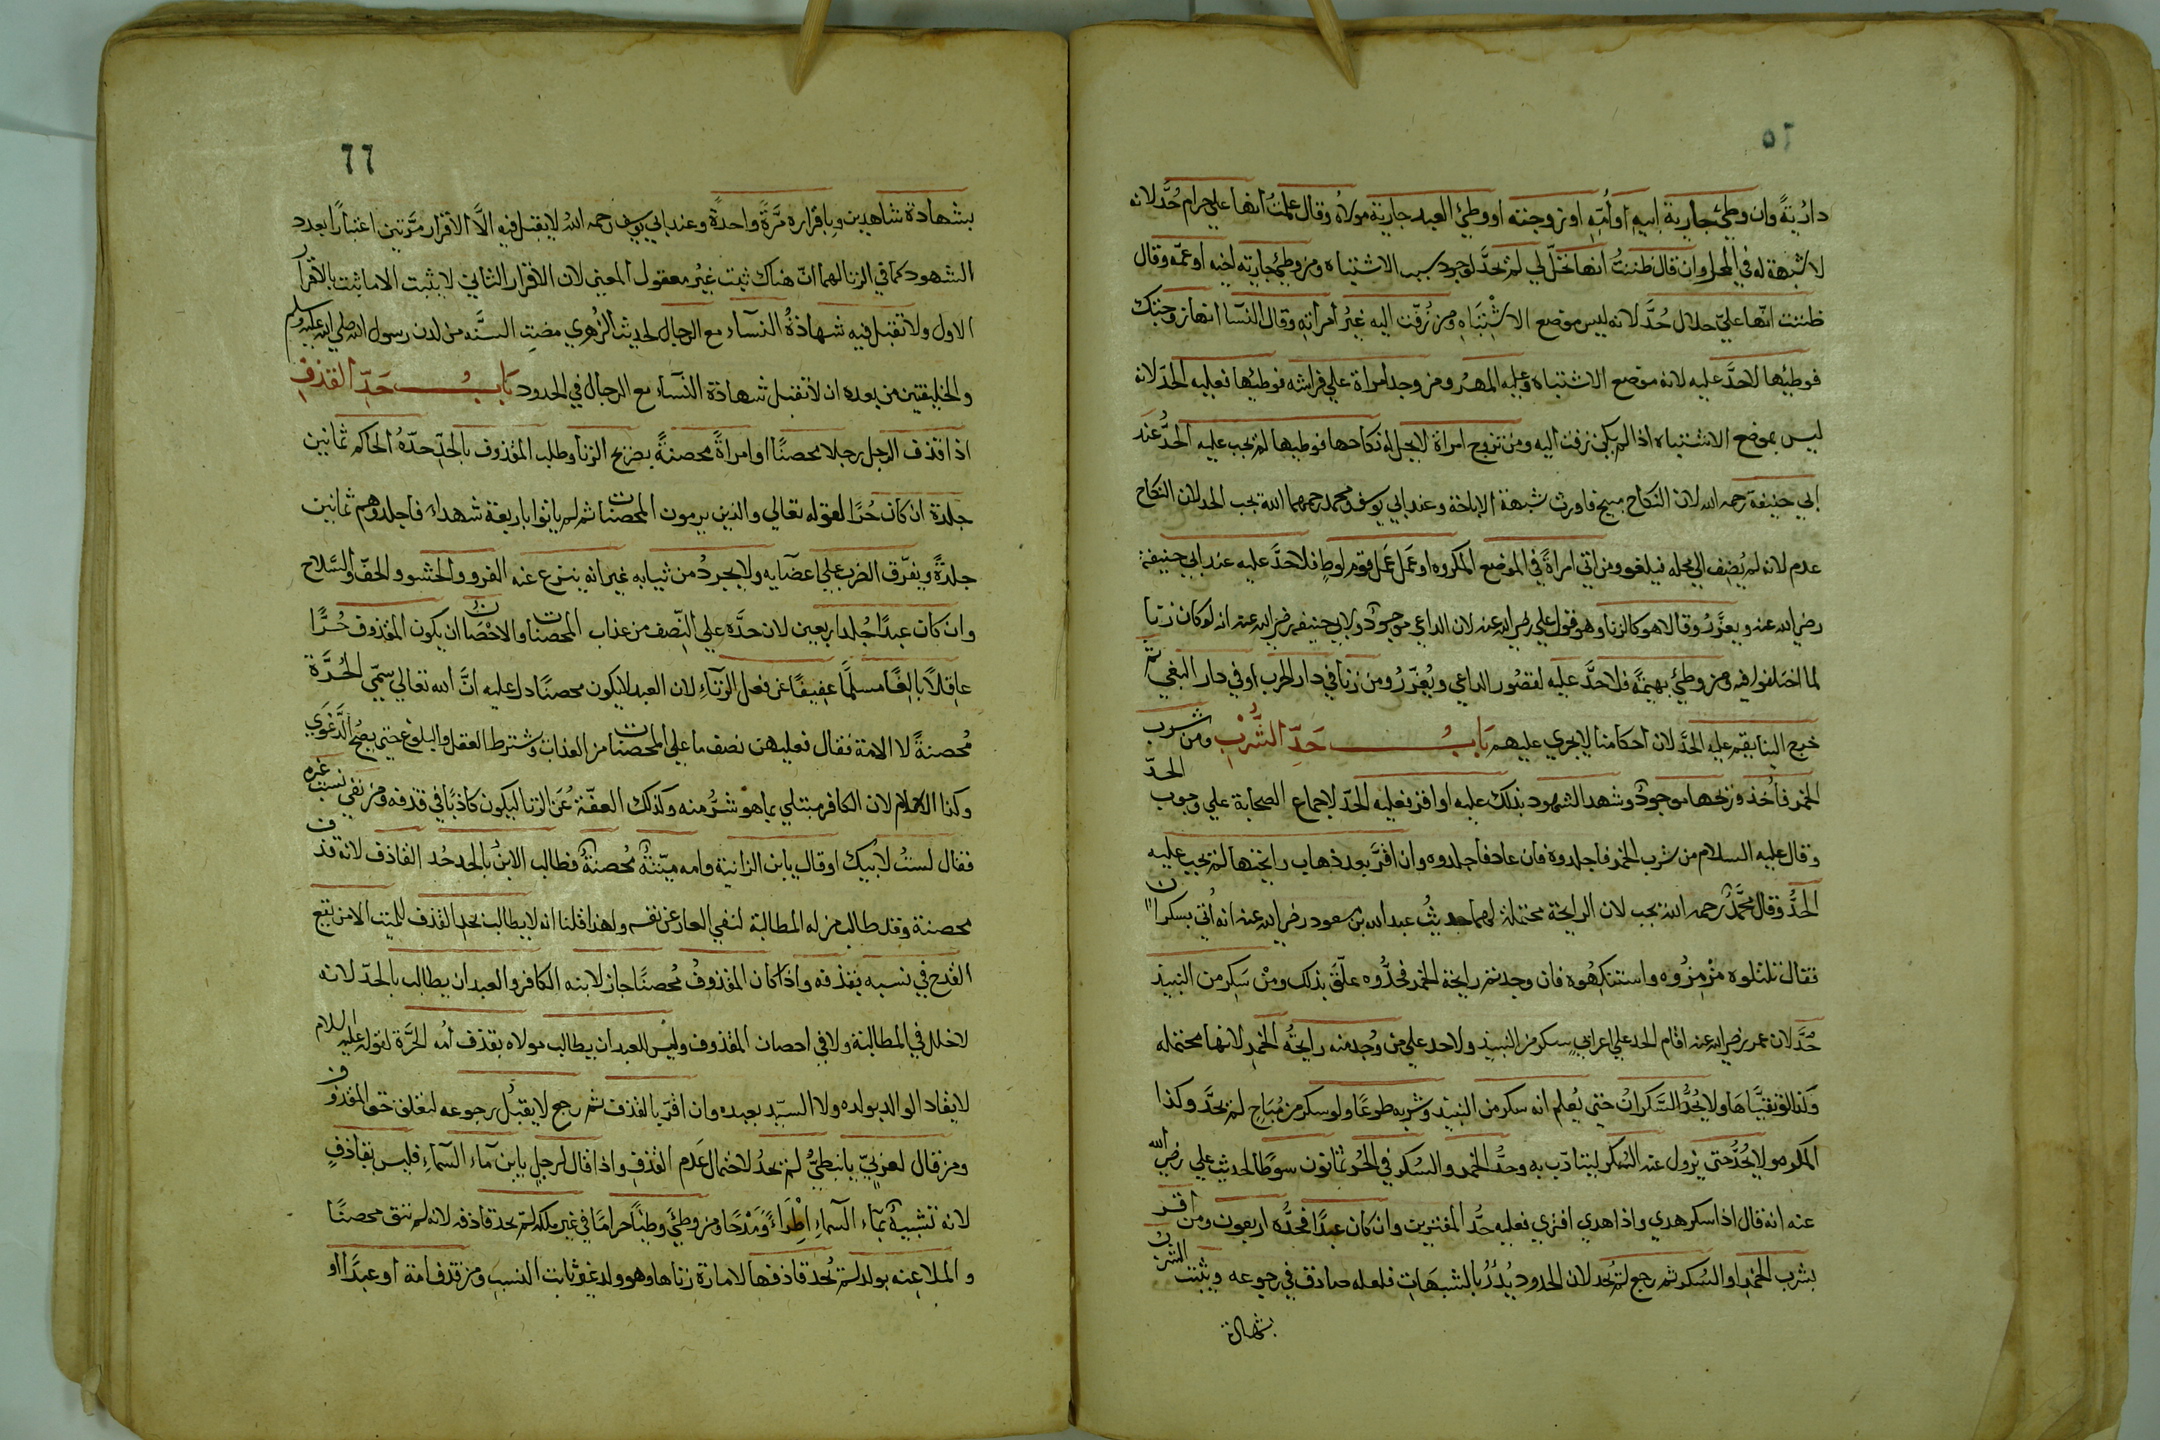 ٦٥
دارئةً وان وطئ جارية ابيه او أمّه او زوجته او وطئ العبد جارية مولاه وقال علمتُ انها علي حرام حُدَّ لانه
لا شبهة له في المحل وان قال ظننتُ انها تحلّ لي لم يحدَّ لوجود سبب الاشتباه ومن وطئ جارية اخيه او عمّه وقال
ظننت انّها عليّ حلال حُدَّ لانه ليس موضع الاشْتِبَاهِ ومن زُفّت اليه غيرُ امرأته وقال النسآ انها زوجتك
فوطئها لاحدَّ عليه لانه موضع الاشتباه وعليه المهرُ ومن وجد امراة علي فراشه فوطئها فعليه الحدّ لانه
ليس بموضع الاشتباه اذا لم يكن زفت اليه ومن تزوج امراة لا يحل له نكاحها فوطيها لم يجب عليه الحدُّ عند
ابي حنيفة رحمه الله لان النكاح مبيح فاورث شبهة الاباحة وعند ابي يوسف ومحمد رحمهما الله يجب الحد لان النكاح
عدم لانه لم يُضِف الي محله فيلغو ومن اتي امراةً في الموضع المكروه او عَمل عَمل قوم لوطٍ فلاحدَّ عليه عند ابي حنيفة
رضي الله عنه ويعزَّرُ وقالا هو كالزنا وهو قول علي رضي الله عنه لان الداعي موجودٌ ولابي حنيفة رضي الله عنه انه لو كان زنا
لما اختلفوا فيه ومن وطئ بهيمةً فلاحدَّ عليه لقصُور الداعي ويُعزّرُ ومن زنا في دار الحرب او في دار البغي ثم
خرج الينا لم يقم عليه الحدّ لان احكامنا لا يجري عليهم بابُ حَدِّ الشُّرْبِ ومن شرب
الخمر فأخذ وريحها موجودٌ وشهد الشهود بذلك عليه او اقرّ فعليه الحدّ لاجماع الصحابة علي وجوب الحدّ
وقال عليه السلام من شرب الخمر فاجلدوه فان عاد فاجلدوه وان اقرَّ بعد ذهاب رايحتها لم يجب عليه
الحدُّ وقال محمَّدٌ رحمه الله يجب لان الرايحة محتملة لهما حديثُ عبد الله بن مسعود رضي الله عنه انه أُتي بسكران
فقال تلتلوه مَزْمِزُوه واستنكِهُوه فان وجدتم رايحة الخمر فحدُّوه علّق بذلك ومنْ سَكِر من النبيذ
حُدَّ لان عمر رضي الله عنه اقام الحد علي اعرابيٍ سكر من النبيذ ولاحد علي من وُجِد منه رايحةُ الخمر لانها محتمله
وكذا لو تقيَّاهَا ولا يُحدُّ السَّكرانُ حتي يُعلم انه سكر من النبيذ وشربه طوعًا ولو سكر من مُبَاحٍ لم يحدَّ وكذا
المكره ولا يُحدُّ حتي يزول عنه السُّكر ليتادّب به وحدُّ الخمر والسُكر في الحُرّ ثمانون سوطًا لحديث علي رضي الله
عنه انه قال اذا سكر هدي واذا هدي افتري فعليه حدُّ المفترين وان كان عبدًا فحدُّه اربعون ومن اقرّ
بشرب الخمر او السُكر ثم رجع لم يُحد لان الحدود يُدْرُ بالشبهَات فلعله صادق في رجوعه ويثبت الشرب
بشهادة
٦٦
بشهادة شاهدين وباقراره مَرَّةً واحدةً وعند ابي يوسف رحمه الله لا يقبل فيه الَّا الاقرار مرَّتين اعتبارًا بعدد
الشهود كما في الزنا لهما انّ هناك ثبت غيرُ معقول المعني لان الاقرار الثاني لا يثبت الا ما ثبت بالاقرار
الاول ولا تقبل فيه شهادةُ النسآء مع الرجال لحديث الزُهري مضتِ السنَّه من لدن رسول الله صلي الله عليه وسلم
والخليفتين من بعده ان لا تقبل شهادة النسآء مع الرجال في الحدود بابُ حَدّ القَذفِ
اذا قذف الرجل رجلا محصنًا او امراةً محصنةً بصريح الزنا وطلب المقذوف بالحدّ حدّهُ الحاكم ثمانين
جلدة ان كان حُرًّا لقوله تعالي والذين يرمون المحصنات ثم لم ياتوا باربعة شهداء فاجلدوهم ثمانين
جلدةً ويفرّق الضرب علي اعضايه ولا يجردُ من ثيابه غير انه ينزع عنه الفرو والحشو والخفّ والسّلاح
وان كان عبدًا جُلد اربعين لان حدَّه علي النّصف من عذاب المحصنات والاحْصَان ان يكون المقذوف حُرًّا
عاقِلًا بالغًا مسلمًا عفيفًا عن فعل الزنآءِ لان العبد لا يكون محصنًا دل عليه انَّ الله تعالي سمّي الحُرَّة
مُحصنةً لا الامة فقال فعليهن نصف ما علي المحصنات من العذاب وشترط العقل والبلوغ حتي يصحّ الدَّعْوَي
وكذا الاسلام لان الكافر مبتلي بما هو شرُّ منه وكذلك العفّة عَن الزنا ليكون كاذبًا في قذفه ومن نفي نسب غيره
فقال لستُ لابيك او قال يابن الزانية وامه ميّتةٌ مُحصنةٌ فطالب الابنُ بالحد حُد القاذف لانه قذف
محصنة وقد طالب من له المطالبة لنفي العار عن نفسه ولهذا قلنا انه لا يطالب بحد القذف للميت الا من يقع
القدح في نسبه بقذفه واذا كان المقذوفُ مُحصنًا جاز لابنه الكافر والعبد ان يطالب بالحدّ لانه
لا خلل في المطالبة ولا في احصان المقذوف وليس للعبد ان يطالب مولاه بقذف أمه الحرَّة لقوله عليه السلام
لا يقاد الوالد بولده ولا السيّد بعبده وان اقرّ بالقذف ثم رجع لا يقبلُ رجوعه لتعلق حق المقذوف
ومن قال لعربيّ يانبطيُّ لم يحدُ لاحتمال عَدم القذفِ واذا قال لرجلٍ يابن مآء السّمآءِ فليس بقاذفٍ
لانه تشبيهٌ بمآء السمآءِ اِطْرَاءً وَمَدْحًا ومن وطئ وطئًا حرامًا في غير ملكه لم يحد قاذفه لانه لم تبق محصنًا
والملاعنه بولد لم يُحد قاذفها لامارة زناها وهو ولد غير ثابت النسب ومن قذف امة او عبدًا او